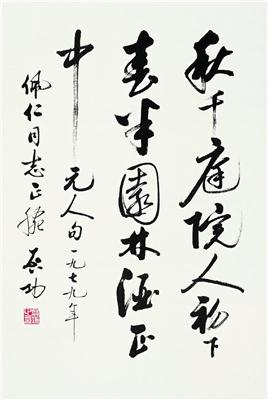 秋千庭院人初下
春半園林酒正
中 元人句一九七九年
佩仁同志正腕 啓功